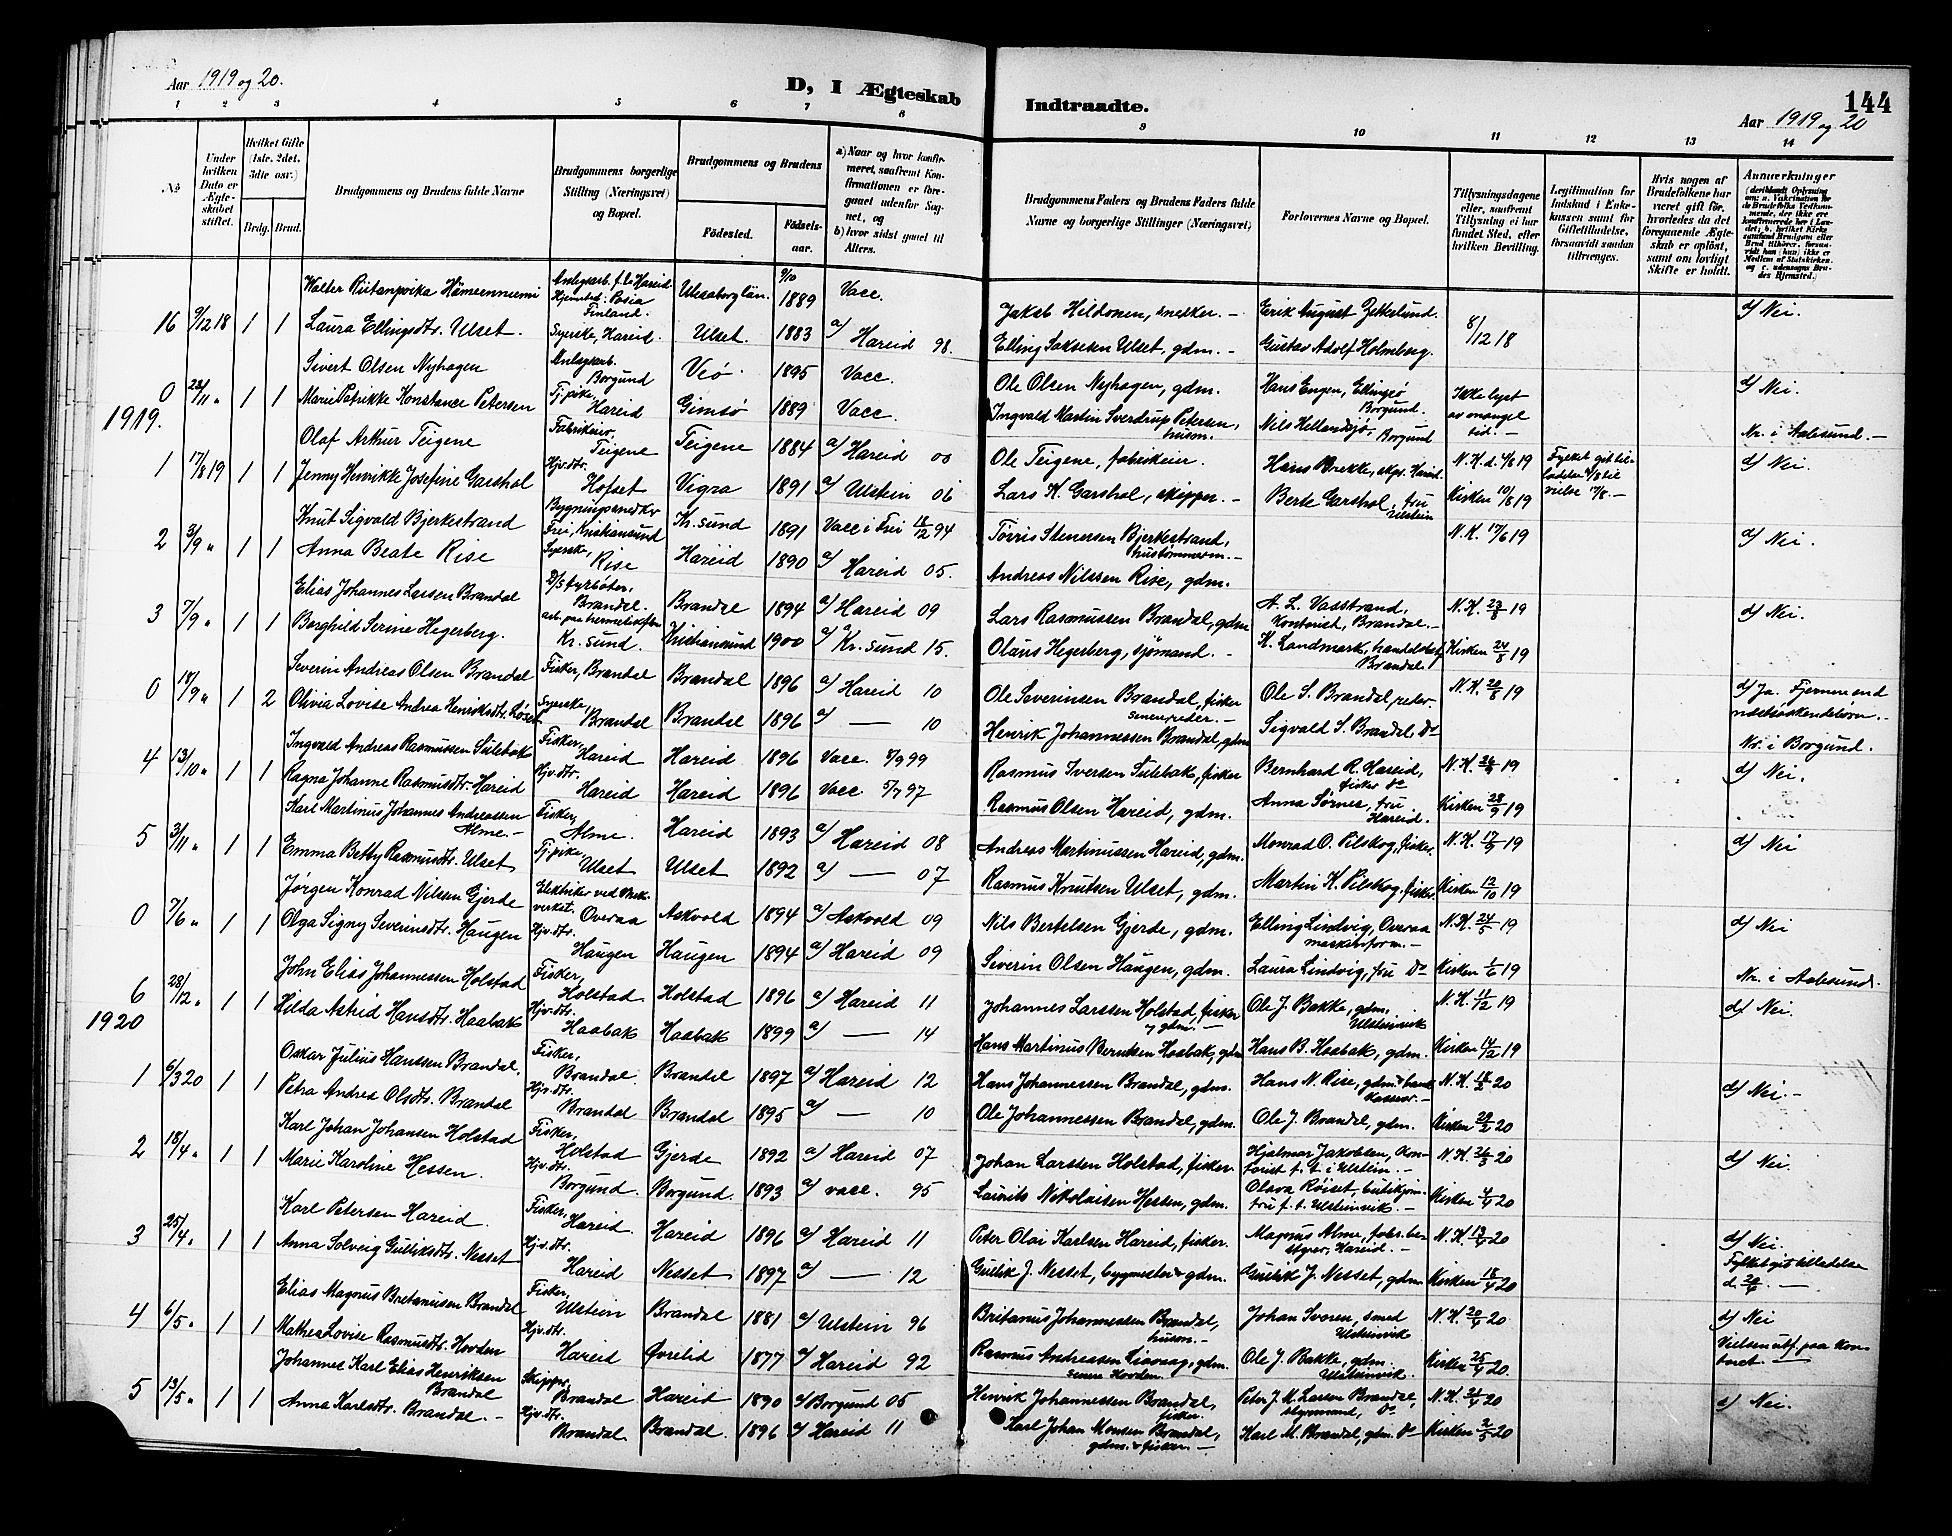 Aar 1919 og 20.
D, I Ægteskab Indtraadte.
144
Aar 1919 og 20
1 2 3 4 5 6 7 8 9 10 11 12 13 14
No
Under hvilken Dato er Ægteskabet stiftet.
Hvilket Gifte (1ste, 2det, 3die osv.)
Brdg. Brud.
Brudgommens og Brudens fulde Navne
Brudgommens borgerlige Stilling (Næringsvei) og Bopæl.
Brudgommens og Brudens
Fødested. Fødselsaar.
a) Naar og hvor konfirmeret, saafremt Konfirmationen er foregaaet udenfor Sognet, og
b) hvor sidst gaaet til Alters.
Brudgommens Faders og Brudens Faders fulde Navne og borgerlige Stillinger (Næringsvei)
Forlovernes Navne og Bopæl.
Tillysningsdagene eller, saafremt Tillysning ei har fundet Sted, efter hvilken Bevilling.
Legitimation for Indskud i Enkekassen samt for Giftetilladelse, forsaavidt saadan tiltrænges.
Hvis nogen af Brudefolkene har været gift før, hvorledes da det foregaaende Ægteskab er opløst, samt om lovligt Skifte er holdt.
Anmærkninger
16 9/12 18 1 1
Walter Hämeenniemi Hareid Hjemsted: Posia Finland. Uleaborg län. 9/10 1889 Vacc. Jakob Hildonen, snekker. Erik August Zetterlund. 8/12 18 d/ Nei.
Laura Ellingsdtr. Ulset. Syerske, Hareid. Ulset. 1883 a/ Hareid 98. Elling Ulset, gdm. Gustav Adolf Holmberg.
0 23/11 " 1 1
Sivert Olsen Nyhagen Anlægsarb. Borgund Veø. 1895 Vacc. Ole Olsen Nyhagen, gdm. Hans Engen, Ellingsø Borgund. Ikke lyst av mangel tid. d/ Nei.
Marie Petrikke Konstance Petersen Tj.pike, Hareid Gimsø 1889 Vacc. Ingvald Martin Sverdrup Petersen, husm. Nils Hellandsjø, Borgund Nr. i Aalesund.
1919.
1 17/8 19 1 1
Olaf Arthur Teigene Fabrikeier, Teigene Teigene 1884 a/ Hareid 00 Ole Teigene, fabrikeier. Hans Brekke, skpr. Hareid. N.H. d. 4/6 19 Fylket git tilladelse 4/8 til vielse 17/8. d/ Nei.
Jenny Henrikke Josefine Garshol Hjv.dtr. Hofset Vigra 1891 a/ Ulstein 06 Lars K. Garshol, skipper. Berte Garshol, fru Ulstein Kirken 10/8 19
2 3/9 " 1 1
Knut Sigvald Bjerkestrand Bygningssnedker Frei, Kristiansund Kr.sund 1891 Vacc i Frei 18/12 94 Torris Stenersen Bjerkestrand, hustømmerm. N.K. 17/6 19 d/ Nei.
Anna Beate Rise Syerske, Rise Hareid 1890 a/ Hareid 05. Andreas Nilssen Rise, gdm.
3 7/9 " 1 1
Elias Johannes Larsen Brandal D/S fyrbøter, Brandal. Brandal 1894 a/ Hareid 09 Lars Rasmussen Brandal, gdm A. L. Vasstrand, Kontorist, Brandal. N.K. 23/8 19 d/ Nei.
Borghild Serine Hegerberg. arb. paa hermetikfabr. Kr. sund. Kristiansund 1900 a/ Kr. sund 15. Olaus Hegerberg, sjømand. K. Landmark, handelsbetj. Brandal. Kirken 24/8 19
0 18/9 " 1 2
Severin Andreas Olsen Brandal Fisker, Brandal Brandal 1896 a/ Hareid 10 Ole Severinsen Brandal, fisker senere reder. Ole S. Brandal, reder. N.K. 20/8 19 d/ Ja. Fjernere end næstsøskendebørn.
Olivia Lovise Andrea Henriksdtr. Syerske, Brandal Brandal 1896 a/ — 10 Henrik Johannessen Brandal, gdm Sigvald S. Brandal. Do Nr. i Borgund.
4 13/10 " 1 1
Ingvald Andreas Rasmussen Sulebak Fisker, Hareid Hareid 1896 Vacc. 8/9 99 Rasmus Iversen Sulebak, fisker Bernhard R. Hareid, fisker do N.K. 26/9 19 d/ Nei.
Ragna Johanne Rasmusdtr. Hareid Hjv.dtr. Hareid Hareid 1896 Vacc 5/7 97 Rasmus Olsen Hareid, gdm. Anna Sørnes, fru Hareid. Kirken 28/9 19
5 3/11 " 1 1
Karl Martinus Johannes Andreassen Alme. Fisker, Alme. Hareid 1893 a/ Hareid 08 Andreas Martinussen Hareid, gdm. Monrad O. Pilskog, fisker. N.K. 17/9 19 d/ Nei
Emma Betty Rasmusdtr. Ulset Tj.pike Ulset Ulset 1892 a/ — 07 Rasmus Knutsen Ulset, gdm. Martin K. Pilskog, fisker Kirken 12/10 19
0 7/6 " 1 1
Jørgen Konrad Nilsen Gjerde Elektriker ved verket. Overaa Askvold 1894 a/ Askvold 09 Nils Bertelsen Gjerde, gdm. Elling Lindvig, Overaa maskinform. N.K. 24/5 19 d/ Nei
Olga Signy Severinsdtr. Haugen Hjv.dtr. Haugen Haugen 1894 a/ Hareid 09 Severin Olsen Haugen, gdm. Laura Lindvig, fru Do Kirken 1/6 19 Nr. i Aalesund.
6 28/12 " 1 1
John Elias Johannessen Holstad Fisker, Holstad Holstad 1896 a/ Hareid 11 Johannes Larssen Holstad, fisker og gdm. Ole J. Bakke, gdm. Ulsteinvik N.K. 11/12 19 d/ Nei.
Hilda Astrid Hansdtr. Haabak Hjv.dtr. Haabak Haabak 1899 a/ — 14 Hans Martinus Berntsen Haabak, gdm Hans B. Haabak, gdm. Kirken 14/12 19
1920
1 6/3 20 1 1
Oskar Julius Hanssen Brandal. Fisker, Brandal. Brandal 1897 a/ Hareid 12 Hans Johannessen Brandal, gdm. Hans N. Rise, gdm. kasser. N.K. 18/2 20 d/ Nei.
Petra Andrea Olsdtr. Brandal Hjv.dtr. Brandal Brandal 1895 a/ — 10 Ole Johannessen Brandal, gdm. Ole J. Brandal, gdm. Kirken 29/2 20
2 18/4 " 1 1
Karl Johan Johansen Holstad Fisker, Holstad Gjerde 1892 a/ Hareid 07 Johan Larssen Holstad, fisker. Hjalmar Jakobsen, Kontorist f. t. i Ulstein. N.K. 26/3 20 d/ Nei.
Marie Karoline Hessen. Hjv.dtr. Borgund. Borgund. 1893 a/ vacc. 95 Laurits Nikolaisen Hessen, gdm. Olava Røiset, fru f. t. Ulsteinvik. Kirken 4/4 20
3 25/4 " 1 1
Karl Petersen Hareid. Fisker, Hareid. Hareid 1896 a/ Hareid 11 Peter Olai Karlsen Hareid, fisker. Magnus Alme, fabr.bestyrer, Hareid. N.K. 13/4 20 d/ Nei.
Anna Solveig Gulliksdtr. Nesset Hjv.dtr. Hareid Nesset 1897 a/ — 12 Gullik J. Nesset, byggmester & gdm. Gullik J. Nesset, gdm Kirken 18/4 20 Fylket git tilladelse d. 20/4.
4 6/5 " 1 1
Elias Magnus Bretanusen Brandal Fisker, Ulstein Brandal 1881 a/ Ulstein 96 Britanus Johannessen Brandal, husm. Johan Svoren, smed Ulsteinvik N.K. 20/4 20 d/ Nei
Mathea Lovise Rasmusdtr. Hovden Hjv.dtr. Hareid Øvrelid 1877 a/ Hareid 92 Rasmus Andreasen Liavaag, gdm. senere Hovden Ole J. Bakke, gdm. Ulsteinvik. Kirken 25/4 20. Vielsen utf. paa kontoret.
5 13/5 " 1 1
Johannes Karl Elias Henriksen Brandal Skipper, Brandal Hareid 1890 a/ Borgund 05 Henrik Johannessen Brandal, fisker. Peter J. M. Larsen Brandal, styrmand, Do N.K. 21/4 20 d/ Nei.
Anna Karlsdtr. Brandal. Hjv.dtr. Brandal Brandal. 1896 a/ Hareid 11 Karl Johan Monsen Brandal, gdm. & fisker. Karl M. Brandal, gdm. Do Kirken 2/5 20